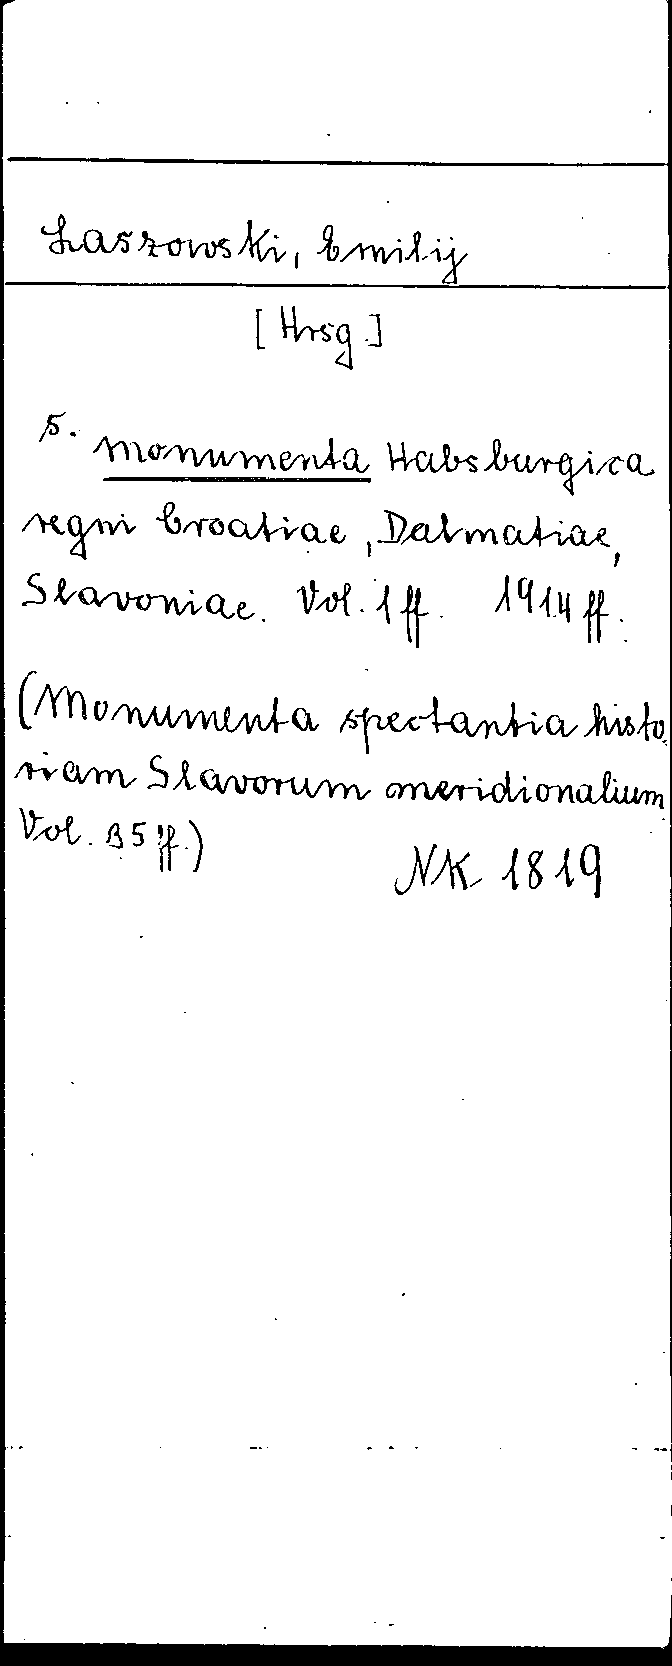 Laszowski, Emilij
[Hrsg.]
s. Monumenta Habsburgica
regni Croatiae, Dalmatiae,
Slavoniae. Vol. 1 ff. 1914 ff.
(Monumenta spectantia histo-
riam Slavorum meridionalium
Vol. 35 ff.)
NK 1819